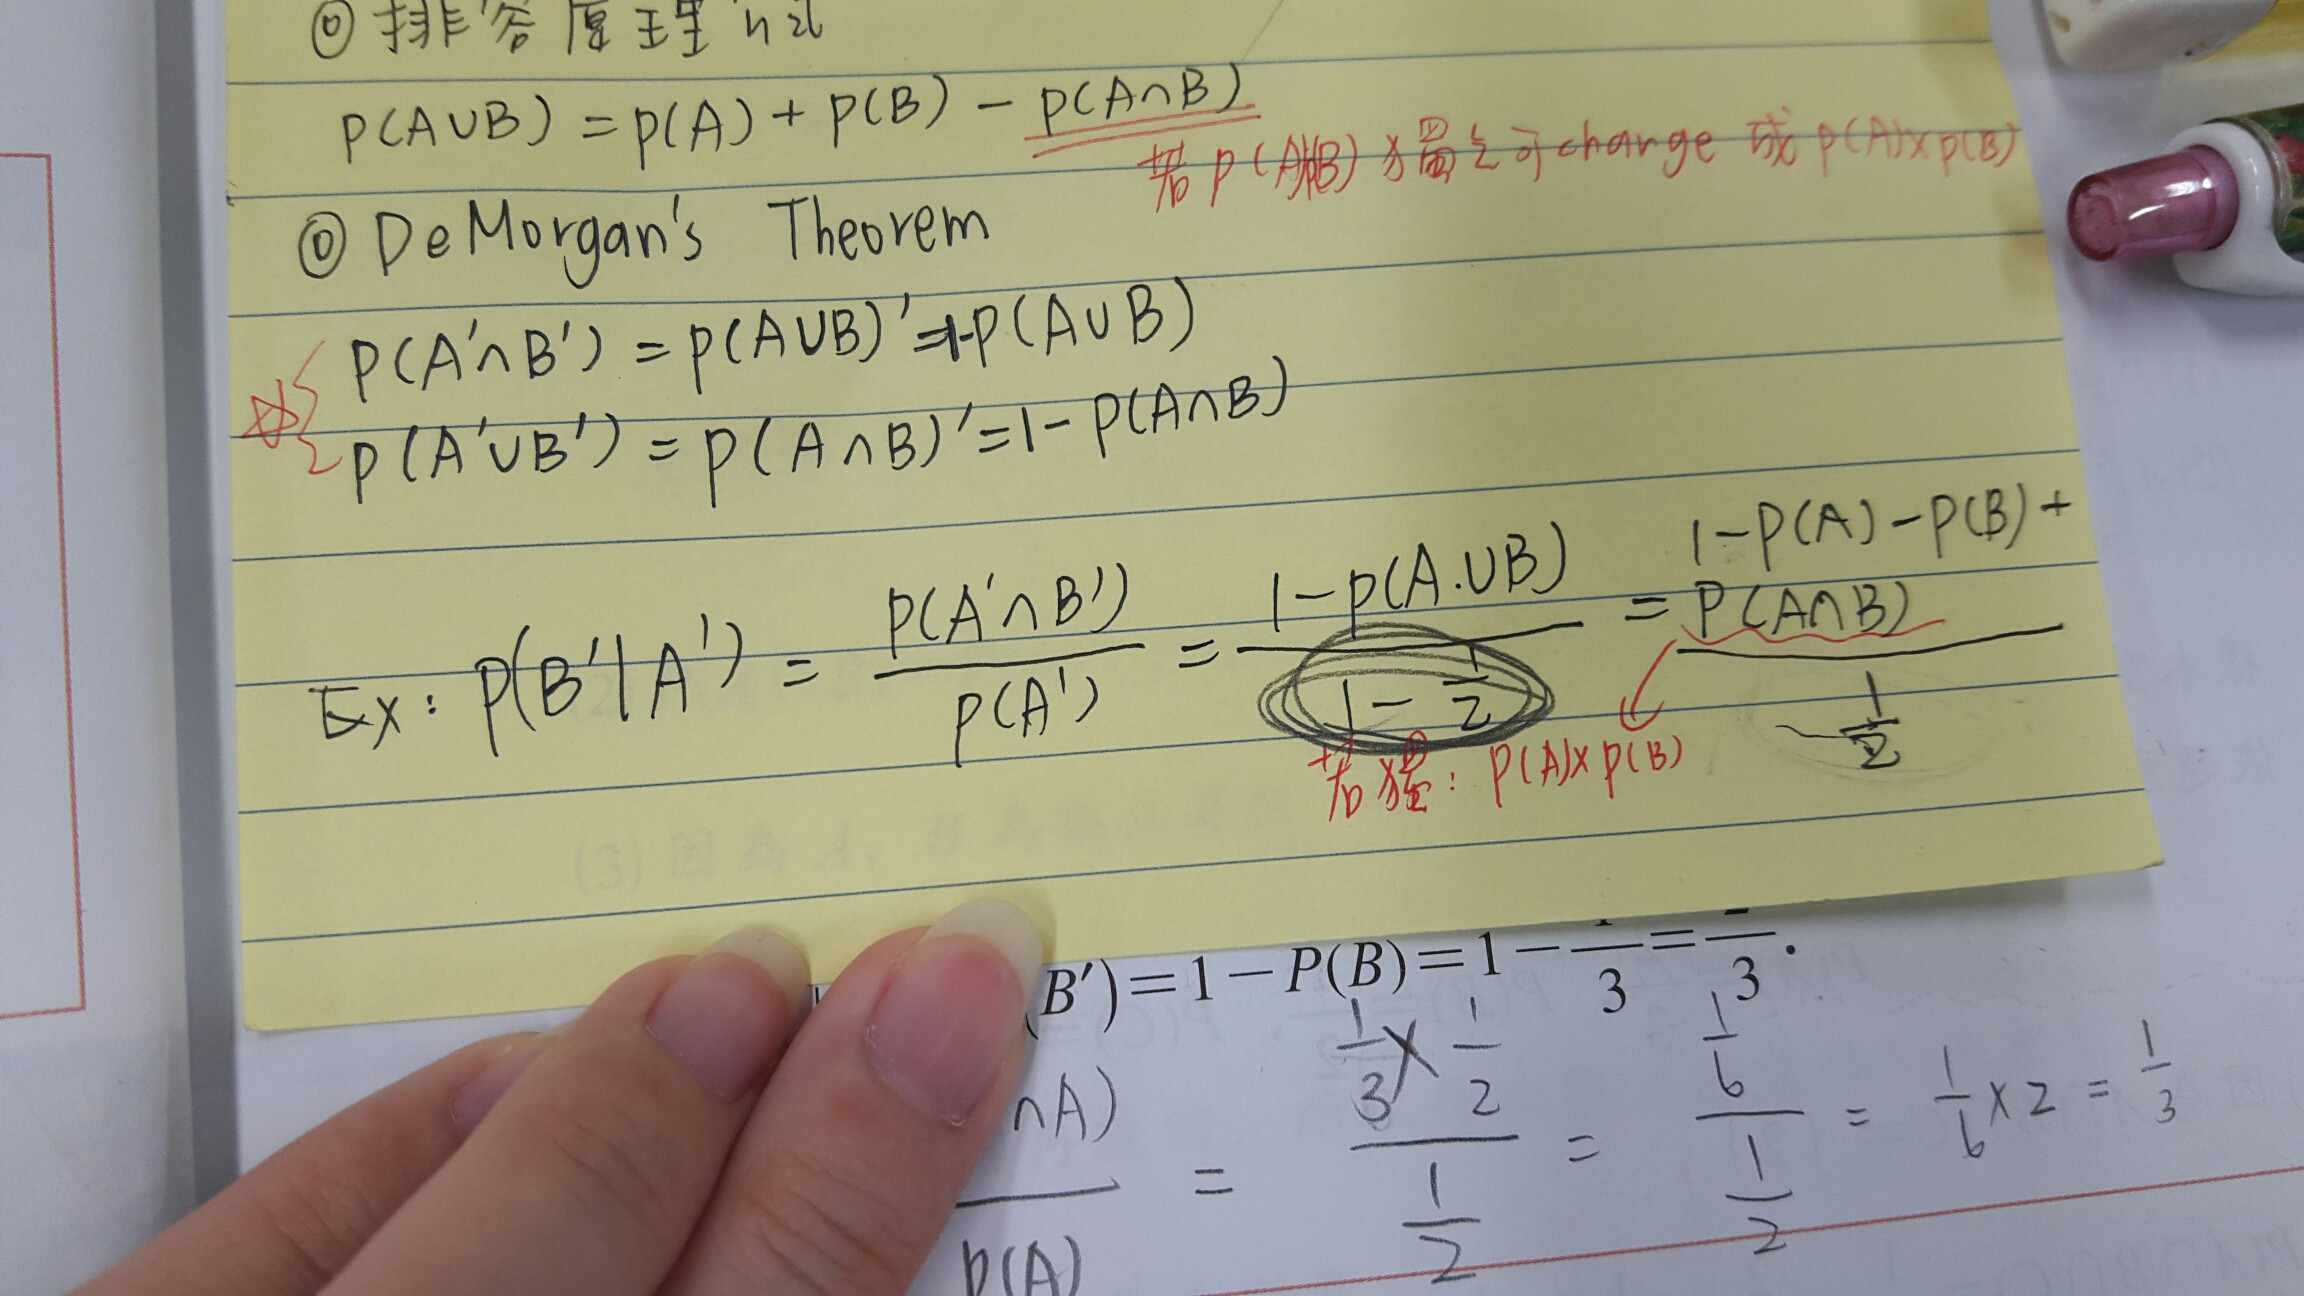 ◎ 排容原理
P(A∪B) = P(A) + P(B) − P(A∩B)
若 P(A∩B) 獨立可change 成 P(A)×P(B)
◎ DeMorgan's Theorem
P(A'∩B') = P(A∪B)' = 1-P(A∪B)
P(A'∪B') = P(A∩B)' = 1 − P(A∩B)
Ex: P(B'|A') = P(A'∩B') / P(A') = 1−P(A∪B) / 1 − 1/2 = 1−P(A)−P(B)+P(A∩B) / 1/2
若獨: P(A)×P(B)
(B')=1−P(B)=1−/3=/3.
∩A) / P(A) = 1/3 × 1/2 / 1/2 = 1/6 / 1/2 = 1/6 × 2 = 1/3